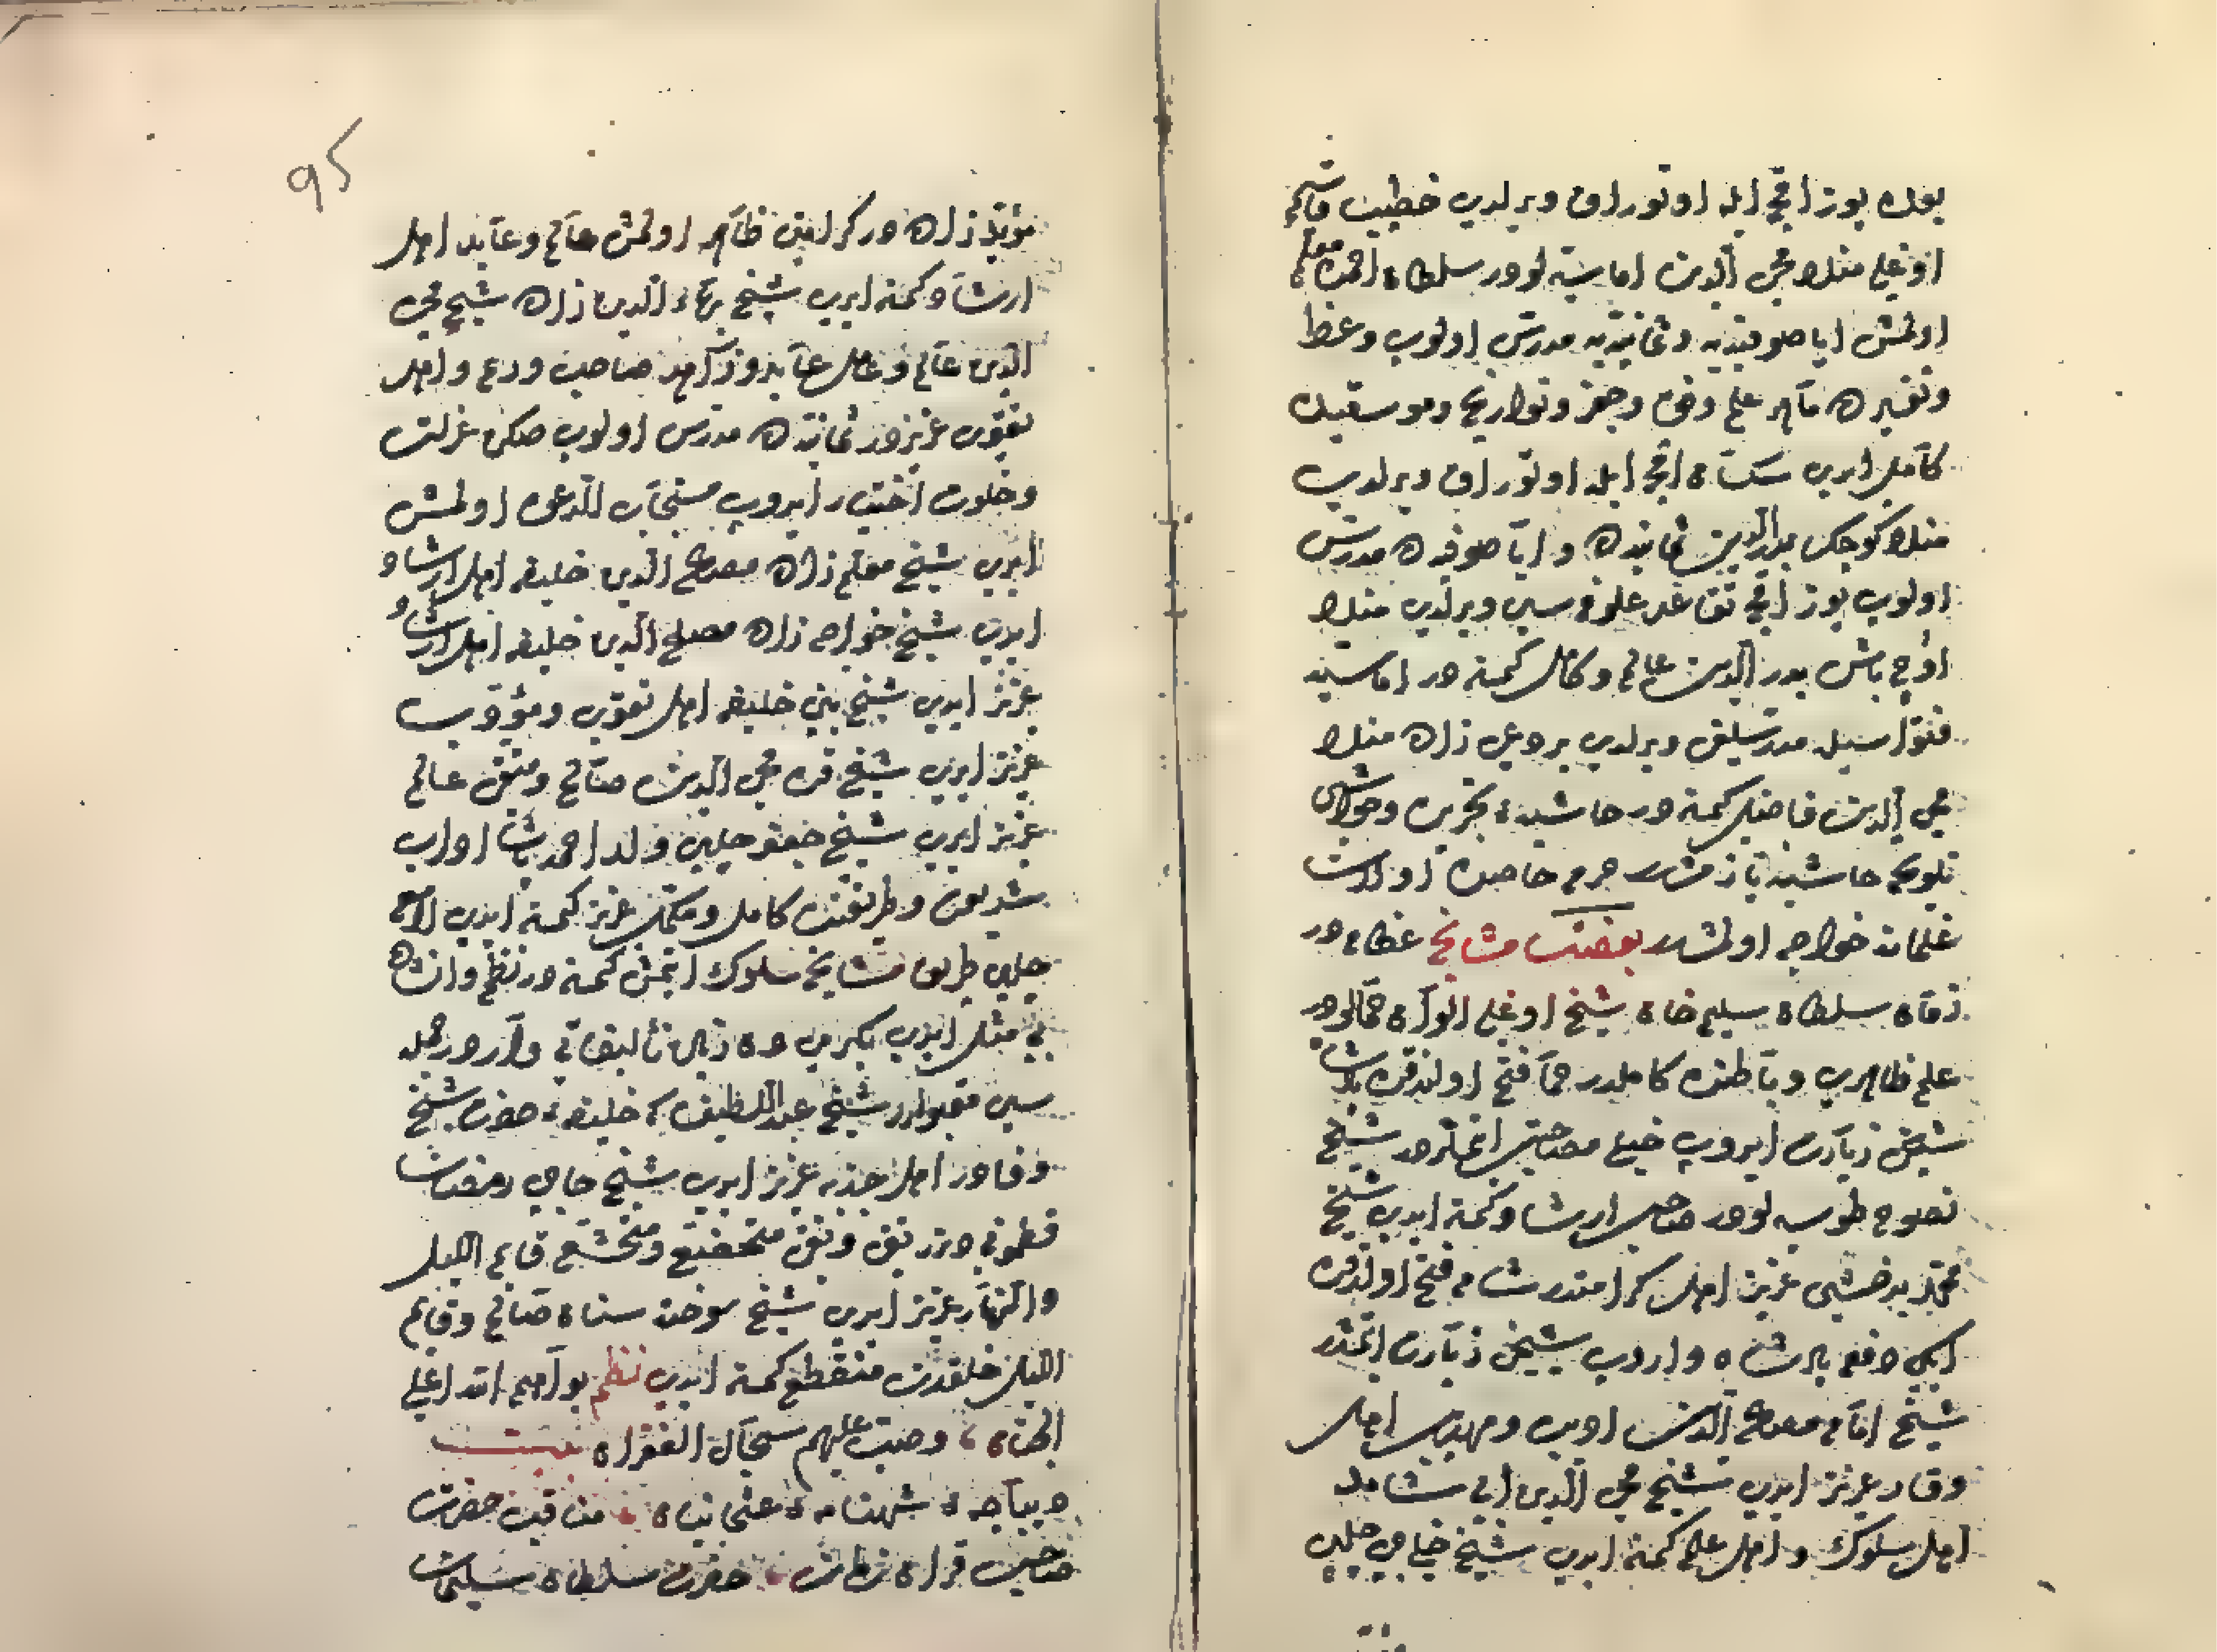 بعده یوز اقچه ایله اوتوراق ویرلدی خطیب قاسم
اوغلی منلا محیی الدین اماسیه لودر سلطان احمده معلم
اولمش ایاصوفیه‌ده و ثمانیه‌ده مدرس اولوب وعظ
و تفسیرده ماهر علم وفق و جفر و تواریخ و موسیقیده
کامل ایدی سکسان اقچه ایله اوتوراق ویرلدی
منلا کوجک بدر الدین ثمانیه‌ده و ایاصوفیه‌ده مدرس
اولوب یوز اقچه تقاعد علوفه سی ویرلدی منلا
اوچ باش بدر الدین عالم و کامل کمسنه در اماسیه
فتواسیله مدرسلق ویرلدی بردعی زاده منلا
محیی الدین فاضل کمسنه در حاشیه تجرید و حواشی
تلویحه حاشیه یازمشدر حرم خاصده اولان
غلمانه خواجه اولمشدر بعضی مشایخ عظام در
زمان سلطان سلیم خان شیخ اوغلی الوان حمالودر
علم ظاهری و باطنده کاملدر حما فتح اولندقده پادشاه
شیخی زیارت ایدوب خیلی مصاحبت اتمشلردر شیخ
نصوح طوسیه لودر صاحب ارشاد کمسنه ایدی شیخ
محمد بدخشی عزیز اهل کرامتدر شام فتح اولندقده
ایکی دفعه پادشاه واروب شیخی زیارت اتمشدر
شیخ امام مصلح الدین ادیب و مهذب اهل
وقار عزیز ایدی شیخ محیی الدین ابی شامه
اهل سلوک و اهل علم کمسنه ایدی شیخ خیالی چلبی
مؤید زاده در کرامتی ظاهر اولمش عالم و عابد اهل
ارشاد کمسنه ایدی شیخ بهاء الدین زاده شیخ محیی
الدین عالم و عامل عابد و زاهد صاحب ورع و اهل
تقوی عزیزدر ثمانیه‌ده مدرس اولوب صکره عزلت
و خلوت اختیار ایدوب مستجاب الدعوه اولمش
ایدی شیخ معلم زاده مصلح الدین خلیفه اهل ارشاد
ایدی شیخ خواجه زاده مصلح الدین خلیفه اهل ارشاد
عزیز ایدی شیخ خلیفه اهل تقوی و مؤدب
عزیز ایدی شیخ قره محیی الدین صالح و متقی عالم
عزیز ایدی شیخ جعفر چلبی ولد احمد پاشا اداب
شریعت و طریقتده کامل و مکمل عزیز کمسنه ایدی لامعی
چلبی طریق مشایخ سلوک اتمش کمسنه در نظم و انشاده
بی مثل ایدی یکرمی دن زیاده تألیفاتی واردر جمله
سی مقبولدر شیخ عبد اللطیف خلیفه حضرت شیخ
وفادر اهل جذبه عزیز ایدی شیخ حاجی رمضان
قسطمونیدندر تقی و نقی متخضع و متخشع قایم اللیل
و النهار عزیز ایدی شیخ سوخته سنان صالح و قایم
اللیل خلقدن منقطع کمسنه ایدی نظم بوأهم الله اعلی
الجنان وصب علیهم سجال الغفران
دیباجه شهنامه عثمانیان مناقب حضرت
صاحب قران زمان حضرت سلطان سلیمان